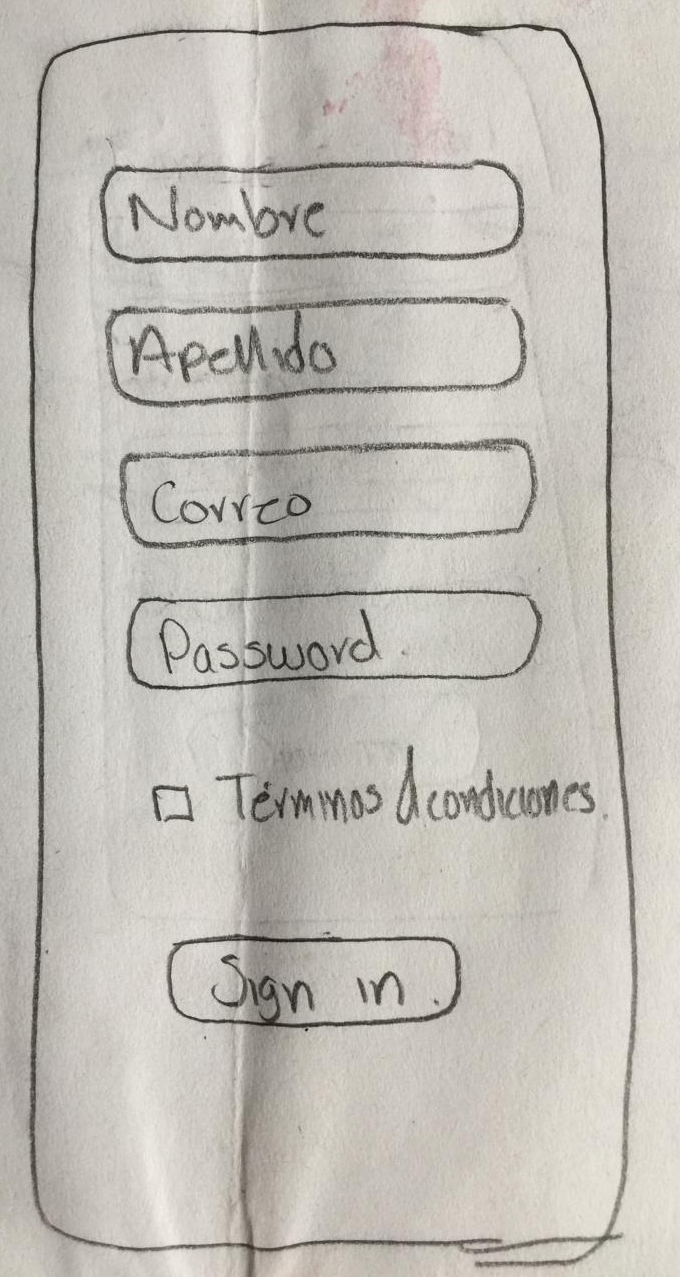 Nombre
Apellido
Correo
Password.
Términos & condiciones.
Sign in.